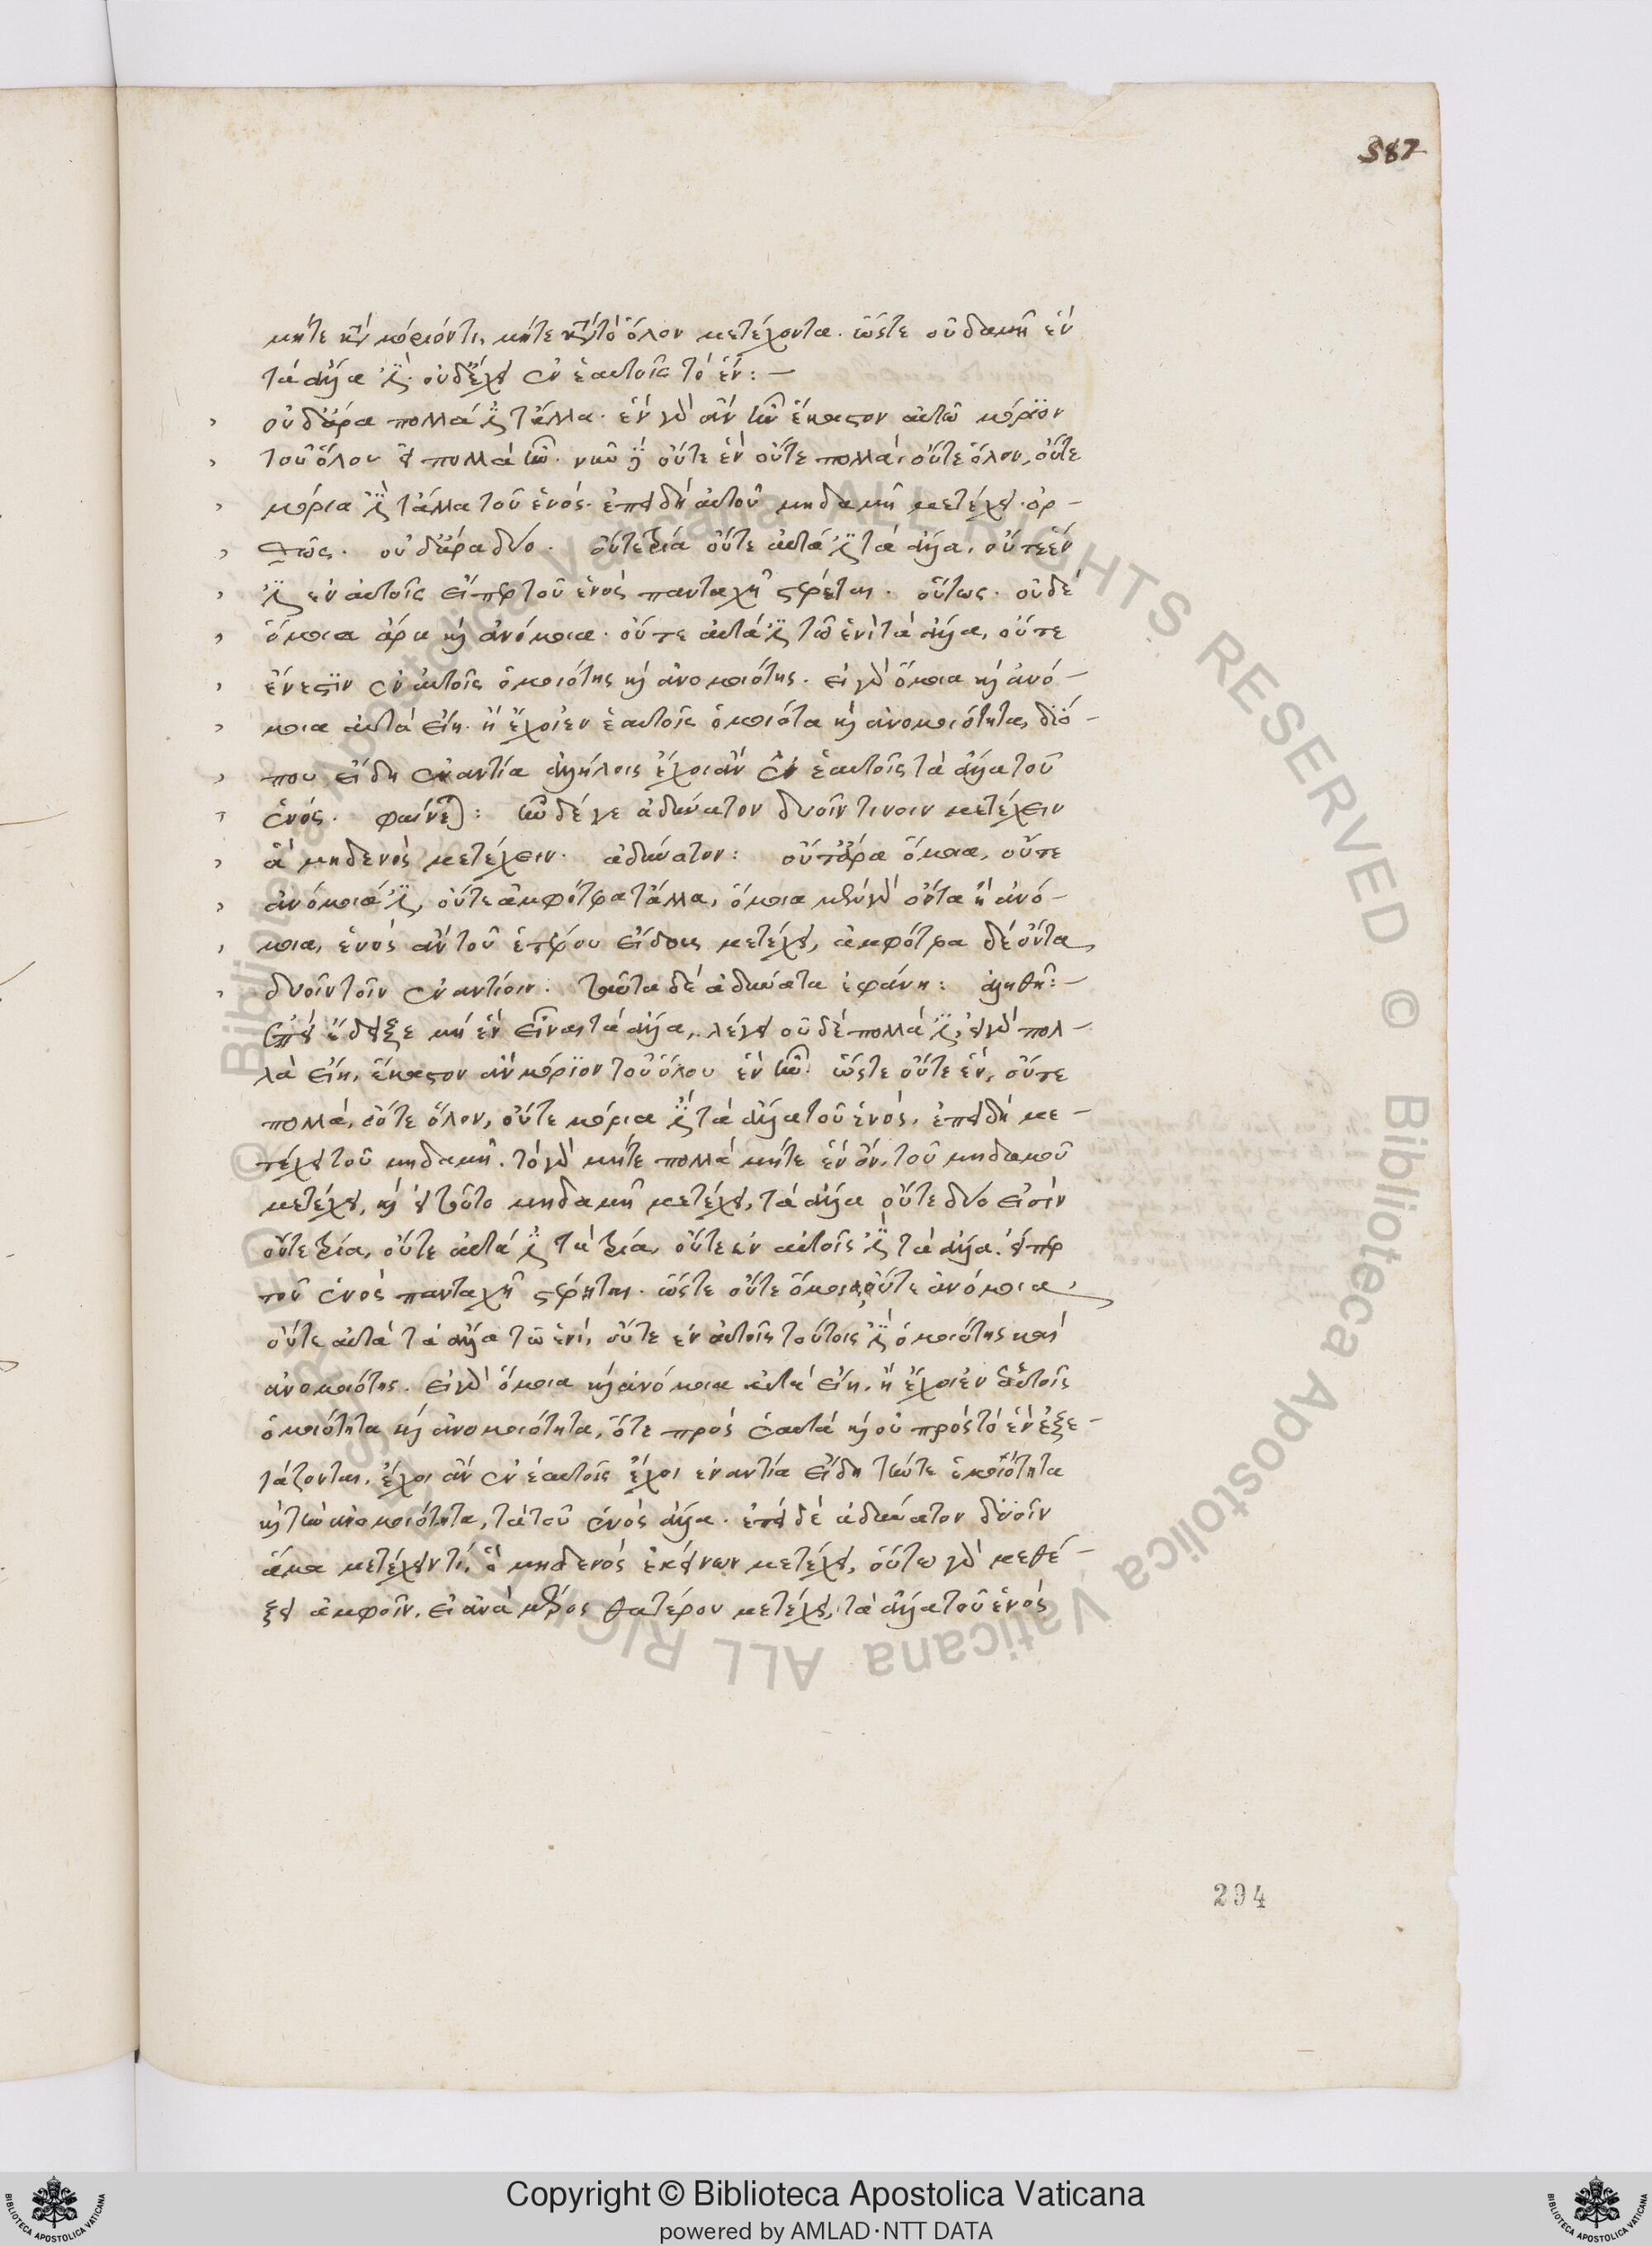 387
μήτε κατὰ μόριόν τι, μήτε κατὰ τὸ ὅλον μετέχοντα. ὥστε οὐδαμῆ ἓν
τὰ ἄλλα ἐστὶ. οὐδ' ἔχει ἐν ἑαυτοῖς τὸ ἕν: —
οὐδ' ἄρα πολλά ἐστι τἄλλα. ἓν γὰρ ἂν ἦν ἕκαστον αὐτῶν μόριον
τοῦ ὅλου εἰ πολλὰ ἦν. νῦν δὲ οὔτε ἓν οὔτε πολλὰ, οὔτε ὅλον, οὔτε
μόρια ἐστὶ τἄλλα τοῦ ἑνός. ἐπειδὴ αὐτοῦ μηδαμῆ μετέχει. ὀρ-
θῶς. οὐδ' ἄρα δύο. οὔτε τρία οὔτε αὐτά ἐστι τὰ ἄλλα, οὔτε ἓν
ἐστι ἐν αὐτοῖς εἴπερ τοῦ ἑνὸς πανταχῆ στέρεται. οὕτως. οὐδὲ
ὅμοια ἄρα καὶ ἀνόμοια. οὔτε αὐτά ἐστι τῷ ἑνὶ τὰ ἄλλα, οὔτε
ἔνεστιν ἐν αὐτοῖς ὁμοιότης καὶ ἀνομοιότης. εἰ γὰρ ὅμοια καὶ ἀνό-
μοια αὐτὰ εἴη. ἢ ἔχοιεν ἑαυτοῖς ὁμοιότα καὶ ἀνομοιότητα, δύο
που εἴδη ἐναντία ἀλλήλοις ἔχοι ἂν ἐν ἑαυτοῖς τὰ ἄλλα τοῦ
ἑνός. φαίνεται: ἦν δέ γε ἀδύνατον δυοῖν τινοιν μετέχειν
ἃ μηδενὸς μετέχειν. ἀδύνατον: οὔτ' ἄρα ὅμοια, οὔτε
ἀνόμοιά ἐστι, οὔτε ἀμφότερα τἄλλα, ὅμοια μὲν γὰρ ὄντα ἢ ἀνό-
μοια, ἑνὸς ἂν τοῦ ἑτέρου εἴδους μετέχει, ἀμφότερα δὲ ὄντα,
δυοῖν τοῖν ἐναντίοιν. ταῦτα δὲ ἀδύνατα ἐφάνη: ἀληθῆ: —
ἐπεὶ ἔδειξε μὴ ἓν εἶναι τὰ ἄλλα, λέγει οὐδὲ πολλά ἐστι, εἰ γὰρ πολ-
λὰ εἴη, ἕκαστον ἂν μόριον τοῦ ὅλου ἓν ἦν. ὥστε οὔτε ἓν, οὔτε
πολλά, οὔτε ὅλον, οὔτε μόρια ἐστὶ τὰ ἄλλα τοῦ ἑνὸς, ἐπειδὴ με-
τέχει τοῦ μηδαμῆ. τὸ γὰρ μήτε πολλὰ μήτε ἓν ὂν, τοῦ μηδαμοῦ
μετέχει, καὶ εἰ τοῦτο μηδαμῆ μετέχει, τὰ ἄλλα οὔτε δύο εἰσὶν
οὔτε τρία, οὔτε αὐτά ἐστι τὰ τρία, οὔτε ἐν αὐτοῖς ἐστι τὰ ἄλλα. εἴπερ
τοῦ ἑνὸς πανταχῆ στέρηται. ὥστε οὔτε ὅμοια, οὔτε ἀνόμοια,
οὔτε αὐτὰ τὰ ἄλλα τῷ ἑνί, οὔτε ἐν αὐτοῖς τούτοις ἐστὶ ὁμοιότης καὶ
ἀνομοιότης. εἰ γὰρ ὅμοια καὶ ἀνόμοια αὐτὰ εἴη, ἢ ἔχοιεν ἑαυτοῖς
ὁμοιότητα καὶ ἀνομοιότητα, ὅτε πρὸς ἑαυτὰ καὶ οὐ πρὸς τὸ ἓν ἐξε-
τάζονται, ἔχοι ἂν ἐν ἑαυτοῖς ἔχοι ἐναντία εἴδη τήντε ὁμοιότητα
καὶ τὴν ἀνομοιότητα, τὰ τοῦ ἑνὸς ἄλλα. ἐπεὶ δὲ ἀδύνατον δυοῖν
ἅμα μετέχειν τὶ, ὃ μηδενὸς ἐκείνων μετέχει, οὕτω γὰρ μεθέ-
ξει ἀμφοῖν, εἰ ἀνὰ μέρος θατέρου μετέχει, τὰ ἄλλα τοῦ ἑνὸς
294
Copyright © Biblioteca Apostolica Vaticana
powered by AMLAD·NTT DATA